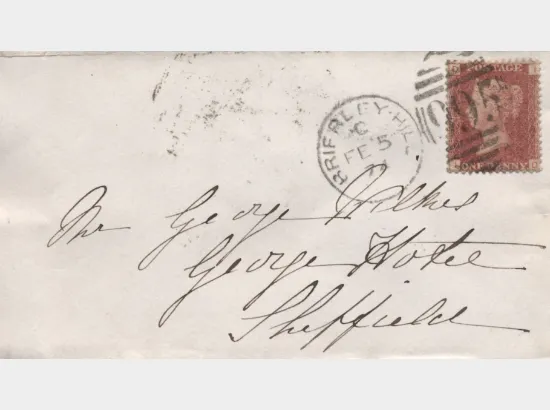 POSTAGE
ONE PENNY
905
BRIERLEY-HILL
C
FE 5
Mr George Wilkes
George Hotel
Sheffield